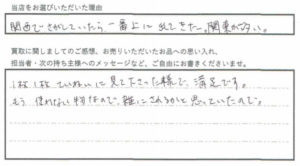 当店をお選びいただいた理由
関西でさがしていたら、一番上に出てきた。関東が多い。
買取に関しましてのご感想、お売りいただいたお品への思い入れ、
担当者・次の持ち主様へのメッセージなど、ご自由にお書きくださいませ。
1枚1枚ていねいに見て下さった様で、満足です。
もう使わない物なので、雑にされるかと思っていたので。